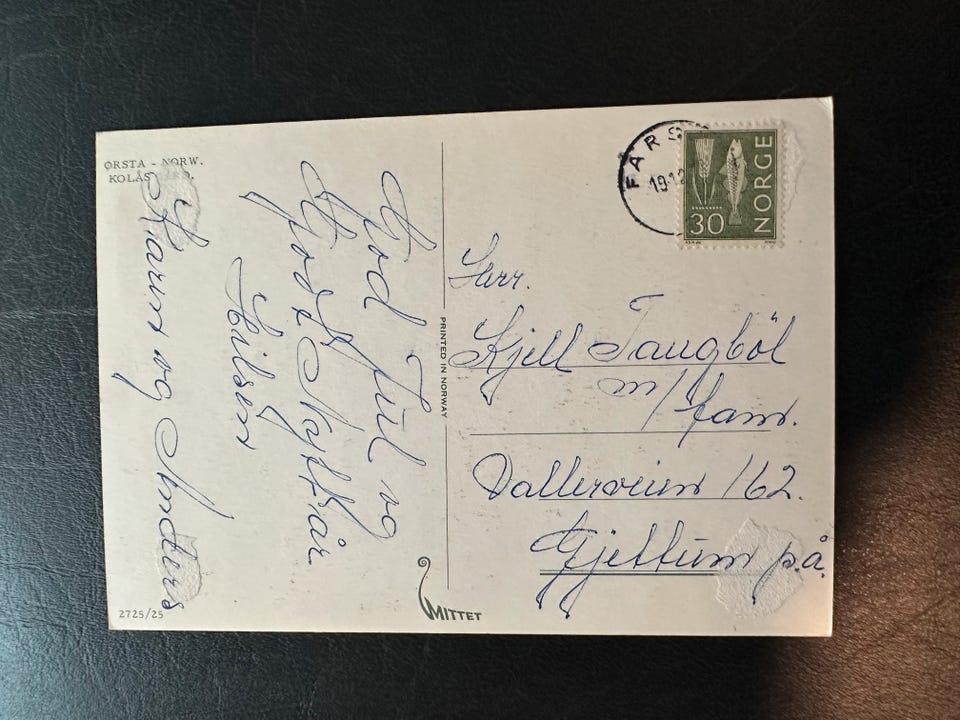 ØRSTA - NORW.
God Jul og
Godt Nyttår
Hilsen
Karin og Anders
2725/25
PRINTED IN NORWAY
MITTET
FARS
19.12
30
NORGE
Herr.
Kjell Taugböl
m/fam.
Dalleveien 162.
Gjettum p.å.